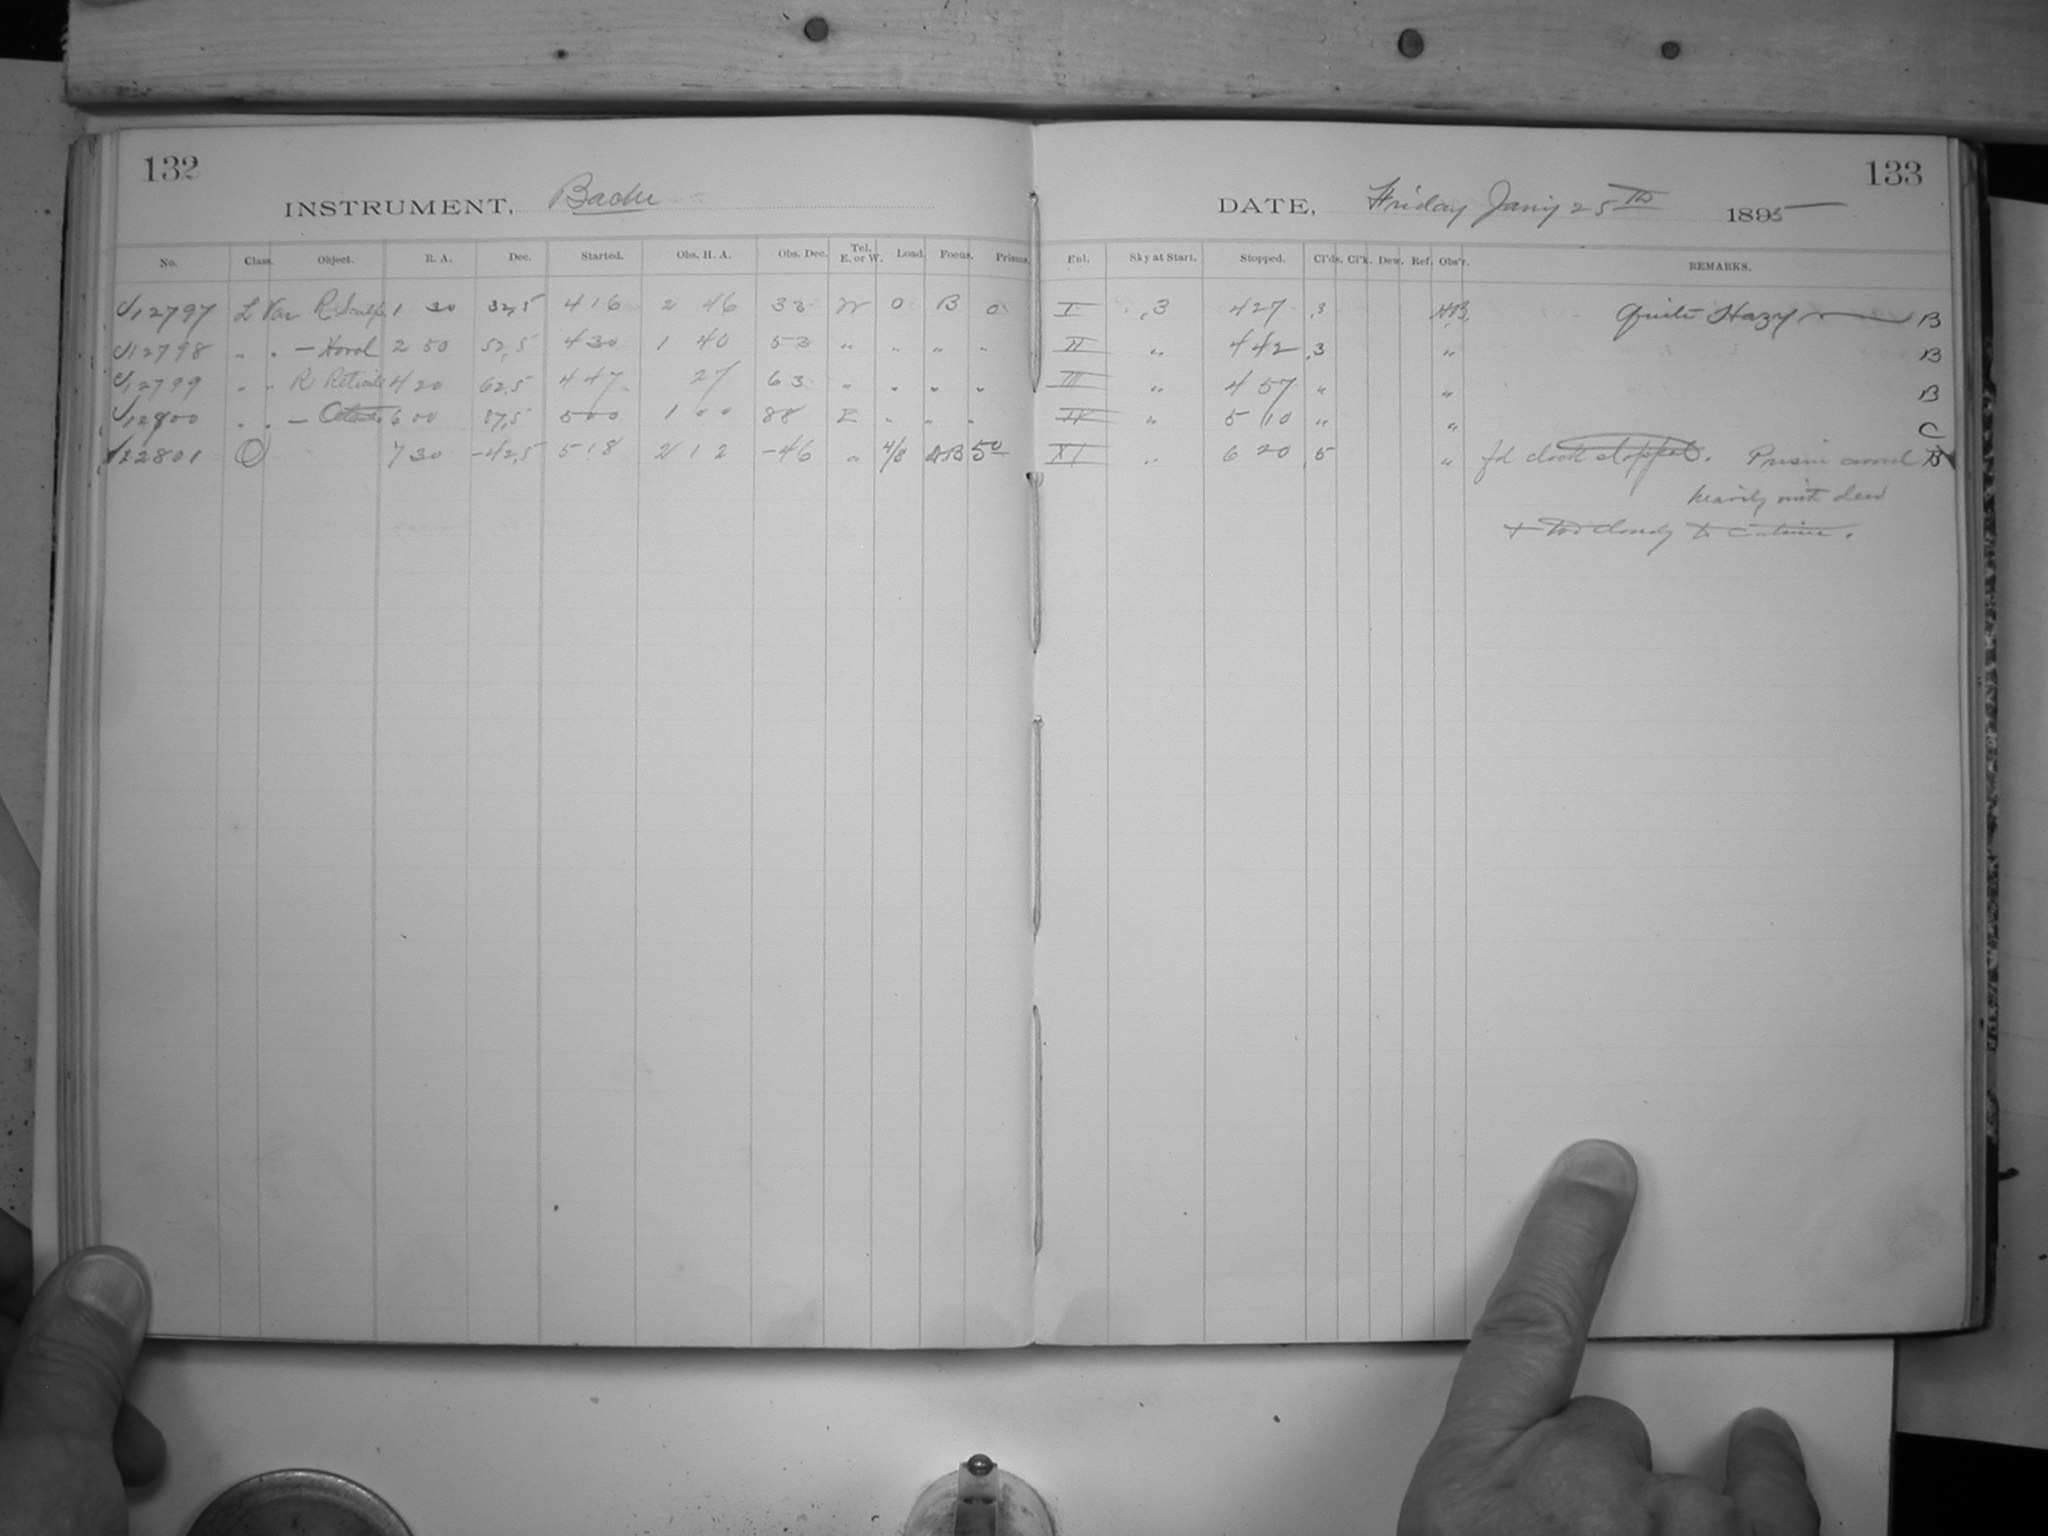 132
INSTRUMENT, Bache
No. Class. Object. R. A. Dec. Started. Obs. H. A. Obs. Dec. Tel. E. or W. Load. Focus. Prisms.
12797 L Var R Sculp 1 30 32,5 4 16 2 46 33 W 0 B 0
12798 " " — Horol 2 50 52,5 4 30 1 40 53 " " " "
12799 " " R Reticule 4 20 62,5 4 47 27 63 " " " "
12800 " " — 6 00 87,5 5 00 1 00 88 E " " "
12801 7 30 -42,5 5 18 2 12 -46 " 4/8 AB 50
133
DATE, Friday Jan'y 25th 1895
Exl. Sky at Start. Stopped. Cl'ds. Cl'k. Dew. Ref. Obs'r. REMARKS.
I .3 4 27 .3 Quite Hazy B
II " 4 42 .3 " B
III " 4 57 " " B
IV " 5 10 " " C
XI " 6 20 .5 " clock stopped. Prism B
heavily with dew
+ too cloudy to